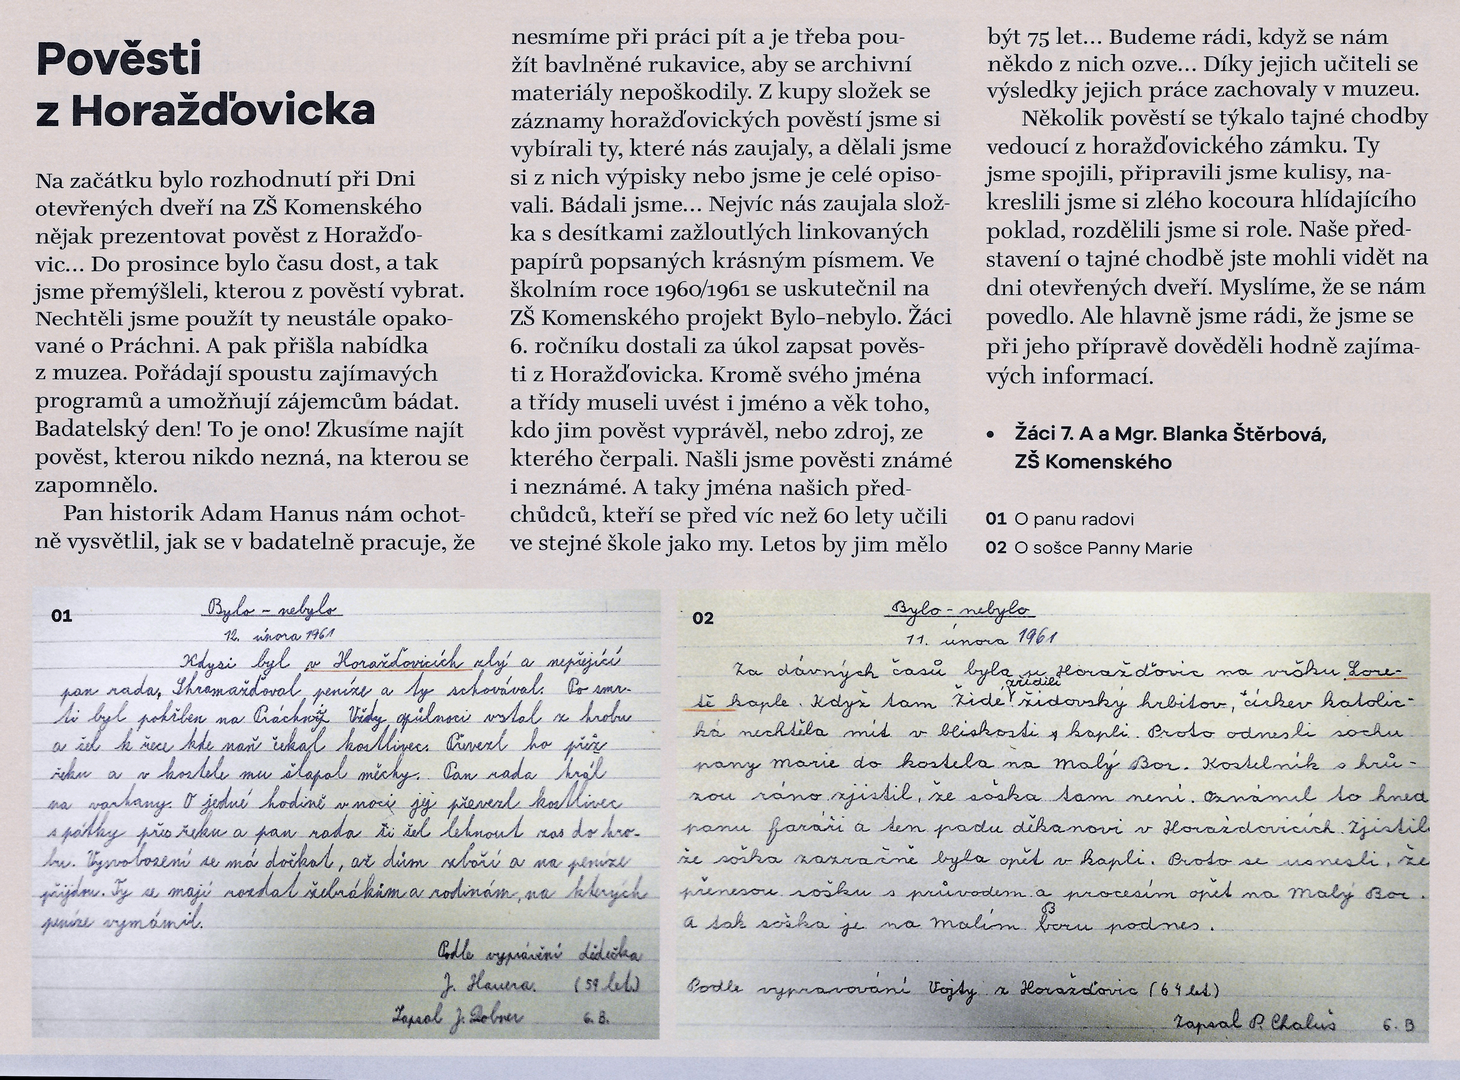 Pověsti
z Horažďovicka
Na začátku bylo rozhodnutí při Dni
otevřených dveří na ZŠ Komenského
nějak prezentovat pověst z Horažďo-
vic... Do prosince bylo času dost, a tak
jsme přemýšleli, kterou z pověstí vybrat.
Nechtěli jsme použít ty neustále opako-
vané o Práchni. A pak přišla nabídka
z muzea. Pořádají spoustu zajímavých
programů a umožňují zájemcům bádat.
Badatelský den! To je ono! Zkusíme najít
pověst, kterou nikdo nezná, na kterou se
zapomnělo.
Pan historik Adam Hanus nám ochot-
ně vysvětlil, jak se v badatelně pracuje, že
nesmíme při práci pít a je třeba pou-
žít bavlněné rukavice, aby se archivní
materiály nepoškodily. Z kupy složek se
záznamy horažďovických pověstí jsme si
vybírali ty, které nás zaujaly, a dělali jsme
si z nich výpisky nebo jsme je celé opiso-
vali. Bádali jsme... Nejvíc nás zaujala slož-
ka s desítkami zažloutlých linkovaných
papírů popsaných krásným písmem. Ve
školním roce 1960/1961 se uskutečnil na
ZŠ Komenského projekt Bylo–nebylo. Žáci
6. ročníku dostali za úkol zapsat pověs-
ti z Horažďovicka. Kromě svého jména
a třídy museli uvést i jméno a věk toho,
kdo jim pověst vyprávěl, nebo zdroj, ze
kterého čerpali. Našli jsme pověsti známé
i neznámé. A taky jména našich před-
chůdců, kteří se před víc než 60 lety učili
ve stejné škole jako my. Letos by jim mělo
být 75 let... Budeme rádi, když se nám
někdo z nich ozve... Díky jejich učiteli se
výsledky jejich práce zachovaly v muzeu.
Několik pověstí se týkalo tajné chodby
vedoucí z horažďovického zámku. Ty
jsme spojili, připravili jsme kulisy, na-
kreslili jsme si zlého kocoura hlídajícího
poklad, rozdělili jsme si role. Naše před-
stavení o tajné chodbě jste mohli vidět na
dni otevřených dveří. Myslíme, že se nám
povedlo. Ale hlavně jsme rádi, že jsme se
při jeho přípravě dověděli hodně zajíma-
vých informací.
• Žáci 7. A a Mgr. Blanka Štěrbová,
ZŠ Komenského
01 O panu radovi
02 O sošce Panny Marie
01
Bylo – nebylo
12. února 1961
Kdysi byl v Horažďovicích zlý a nepřející
pan rada. Shromažďoval peníze a ty schovával. Po smr-
ti byl pohřben na Práchni. Vždy o půlnoci vstal z hrobu
a šel k řece kde naň čekal kostlivec. Převezl ho přes
řeku a v kostele mu šlapal měchy. Pan rada hrál
na varhany. O jedné hodině v noci jej převezl kostlivec
spátky přes řeku a pan rada si šel lehnout zas do hro-
bu. Vysvobození se má dočkat, až dům zboří a na peníze
přijdou. Ty se mají rozdat žebrákům a rodinám, na kterých
peníze vymámil.
Podle vyprávění dědečka
J. Hauera. (59 let)
Zapsal J. Dobner 6. B.
02
Bylo - nebylo
11. února 1961
Za dávných časů byla u Horažďovic na vršku Lore-
tě kaple. Když tam Židé zřídili židovský hrbitov, církev katolic-
ká nechtěla mít v blískosti kapli. Proto odnesli sochu
pany marie do kostela na Malý Bor. Kostelník s hrů-
zou ráno zjistil, že soška tam není. Oznámil to hned
panu faráři a ten padu děkanovi v Horažďovicích. Zjistil
že soška zazračně byla opět v kapli. Proto se usnesli, že
přenesou sošku s průvodem a procesím opět na Malý Bor.
A tak soška je na Malím Boru podnes.
Podle vypravování Vojty z Horažďovic (64 let)
Zapsal P. Chaluš 6. B